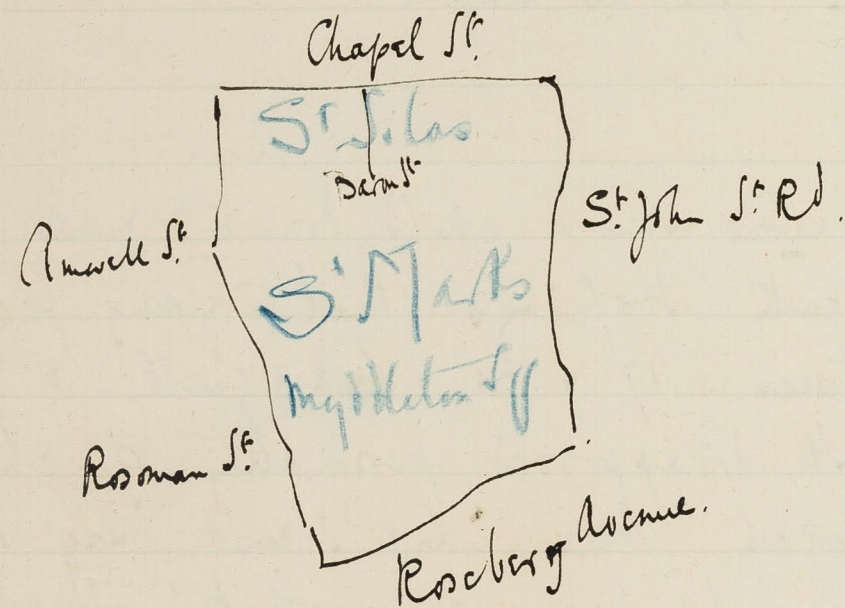 Chapel St.
St Silas
Baron St
St. John St. Rd.
Amwell St.
St Marks
Myddleton Sq
Rosoman St.
Rosebery Avenue.